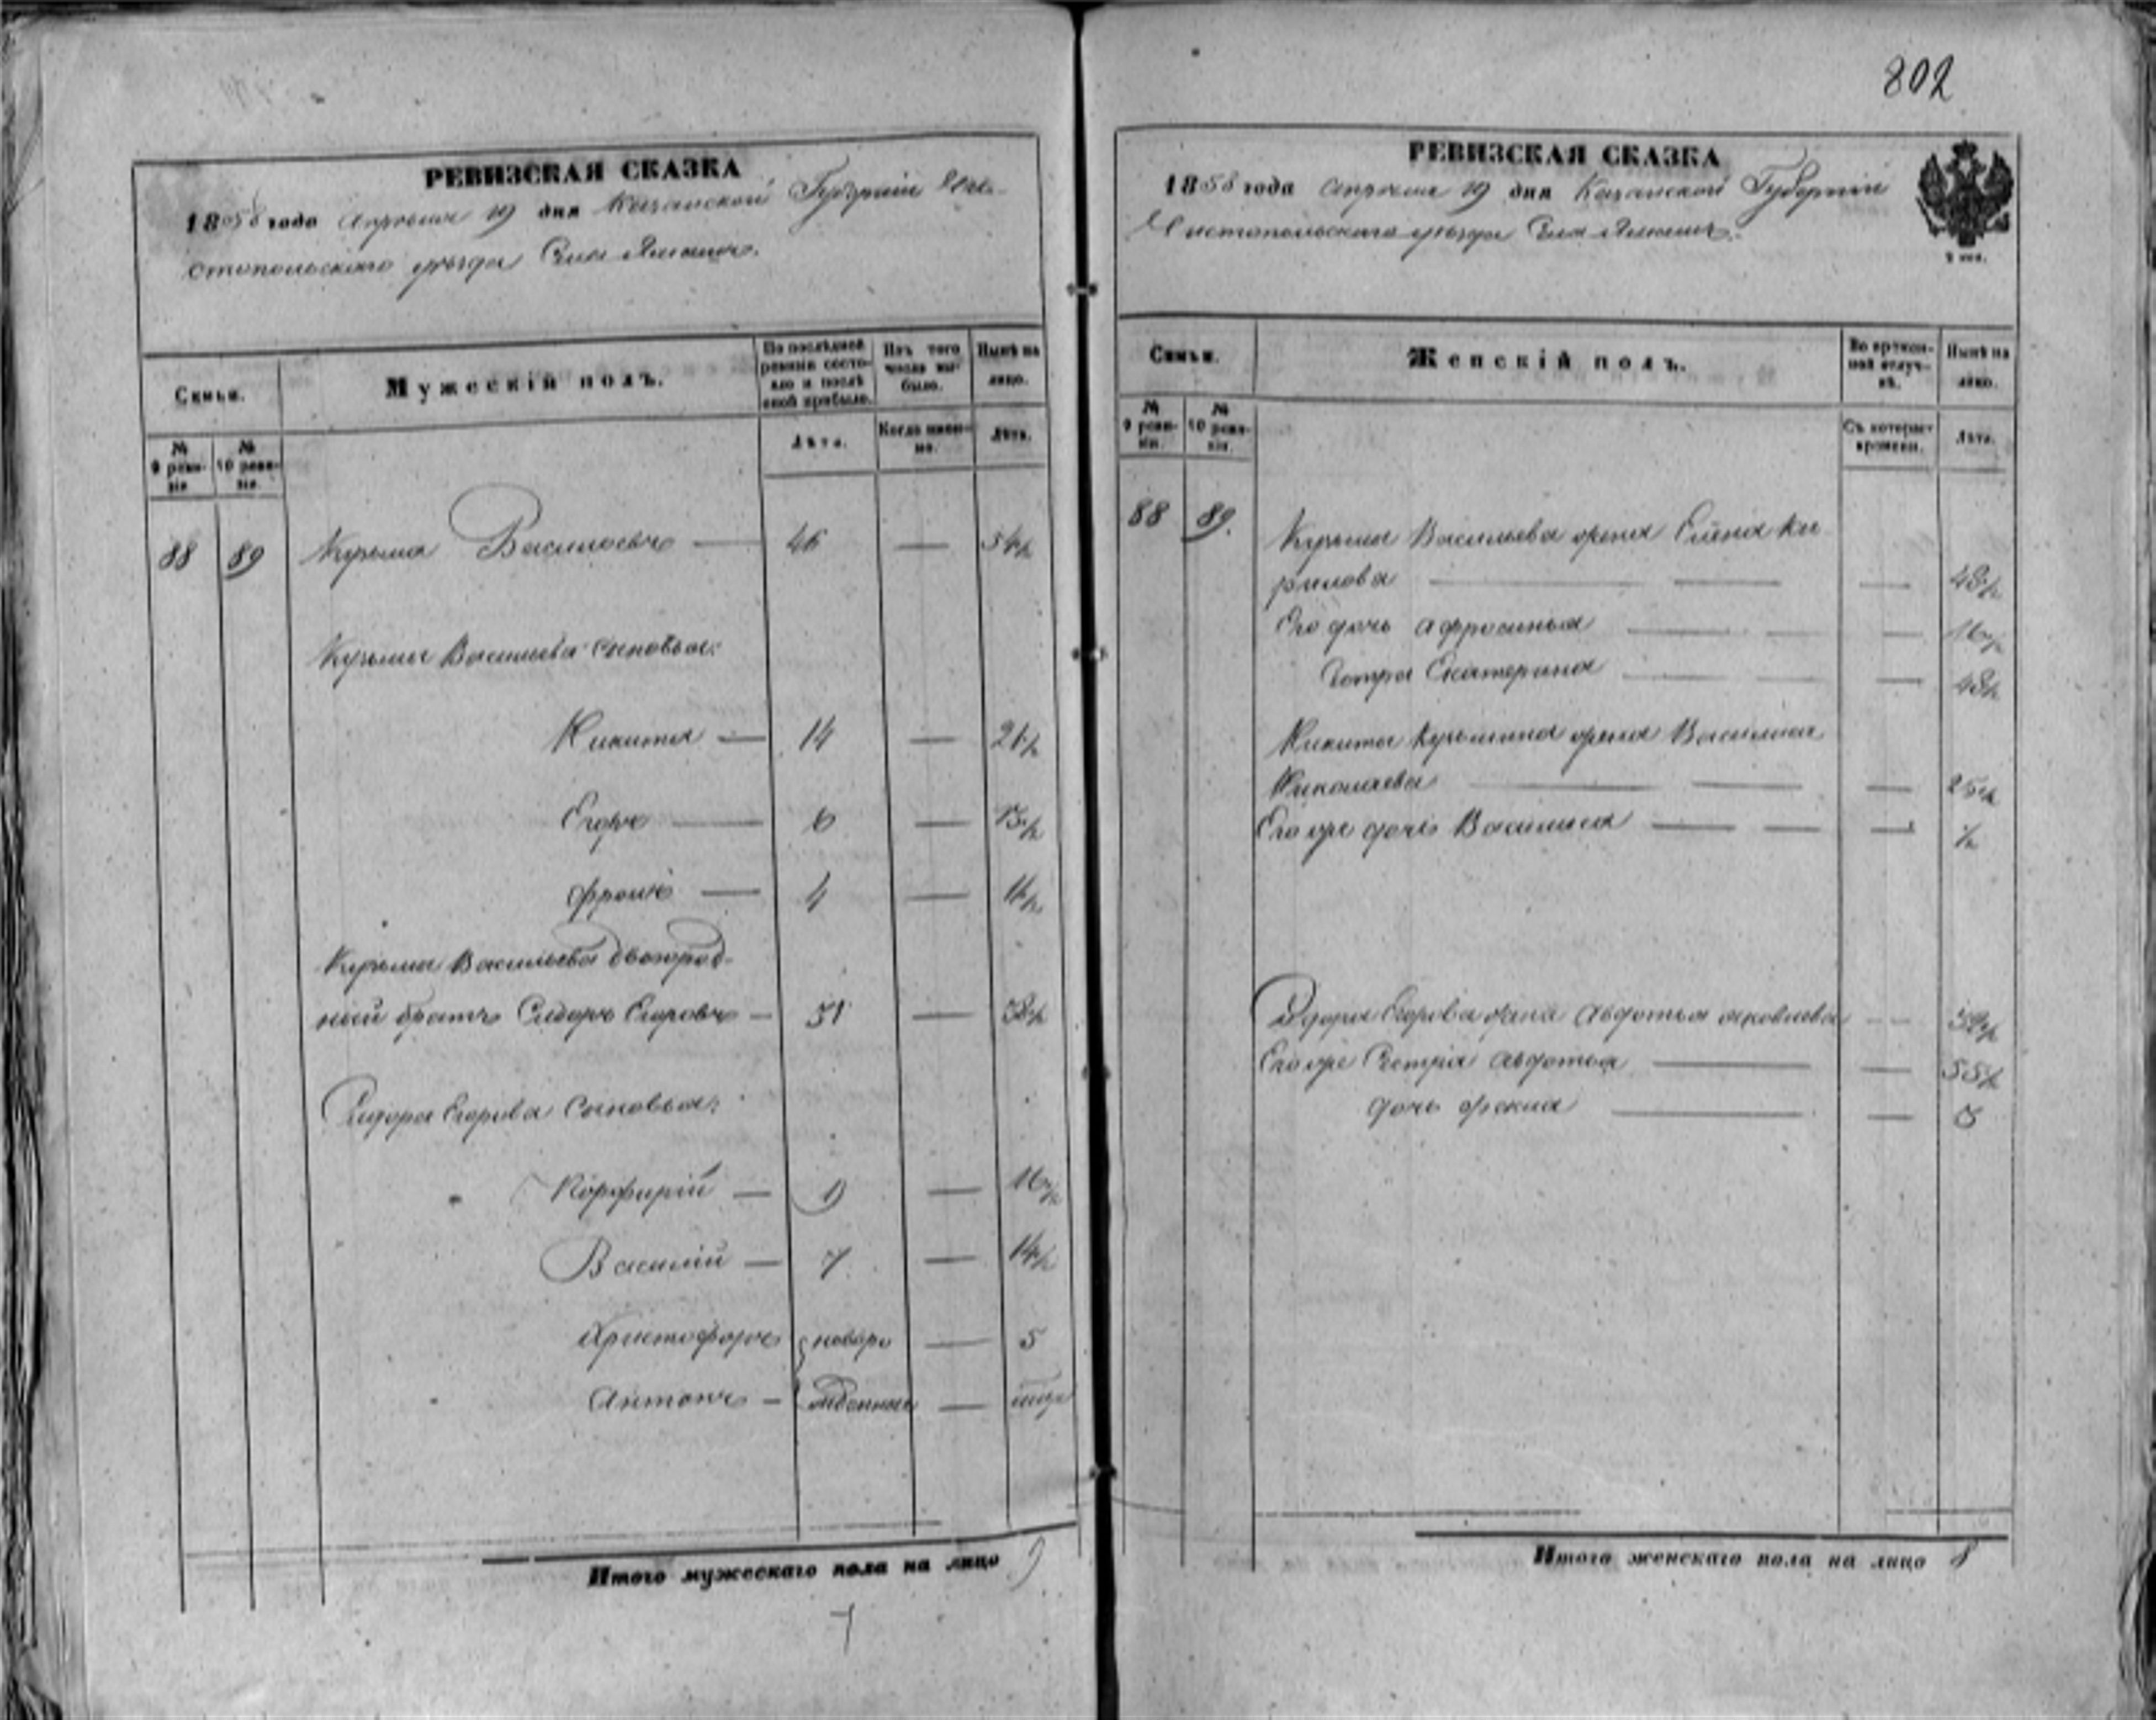 802
РЕВИЗСКАЯ СКАЗКА
1858 года Апреля 19 дня Казанской Губерніи Чи-
стопольскаго уѣзда
Семьи.
Мужескій полъ.
По послѣдней ревизіи состояло и послѣ оной прибыло.
Изъ того числа выбыло.
Нынѣ на лицо.
№ 9 ревизіи.
№ 10 ревизіи.
Лѣта.
Когда именно.
Лѣта.
88 89 Кузьма Васильевъ — 46 — 54½
Кузьмы Васильева сыновья:
Никита — 14 — 21½
Егоръ — 6 — 13½
Фролъ — 4 — 11½
Кузьмы Васильева двоюрод-
ный братъ Сидоръ Егоровъ — 51 — 58½
Сидора Егорова сыновья:
Порфирій — 9 — 16½
Василій — 7 — 14½
Христофоръ новоро — 5
Антонъ — жденные —
Итого мужескаго пола на лицо 9
РЕВИЗСКАЯ СКАЗКА
1858 года Апреля 19 дня Казанской Губерніи
Чистопольскаго уѣзда
Семьи.
Женскій полъ.
Во временной отлучкѣ.
Нынѣ на лицо.
№ 9 ревизіи.
№ 10 ревизіи.
Съ котораго времени.
Лѣта.
88 89. Кузьмы Васильева жена Елена Ки
рилова — — — 48½
Его дочь Афросинья — — — 16½
Сестра Екатерина — — — 48½
Никиты Кузьмина жена Василиса
Николаева — — — 25½
Его же дочь Василиса — — — ½
Сидора Егорова жена Авдотья Яковлева —
Его же Сестра Авдотья — — 55½
дочь — —
Итого женскаго пола на лицо 8